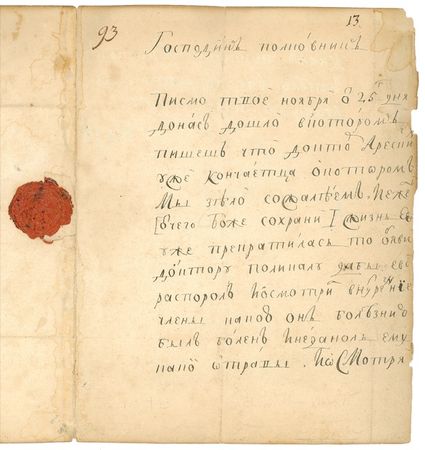 93
13.
Господинъ полковникъ
Писмо твое ноября ѿ 25 г дня
до насъ дошло в котором
пишешь что доктор Арескин
уже кончаетца о котором
мы зѣло сожалѣем. И еже
[ѿ чего Боже сохрани] жизнь ево
уже прекратилась то
доктору поликалу дабы ево
распорол и осмотрил внутренние
члены какою онъ болѣзнию
былъ боленъ и недано ль ему
какой отравы. И осмотря